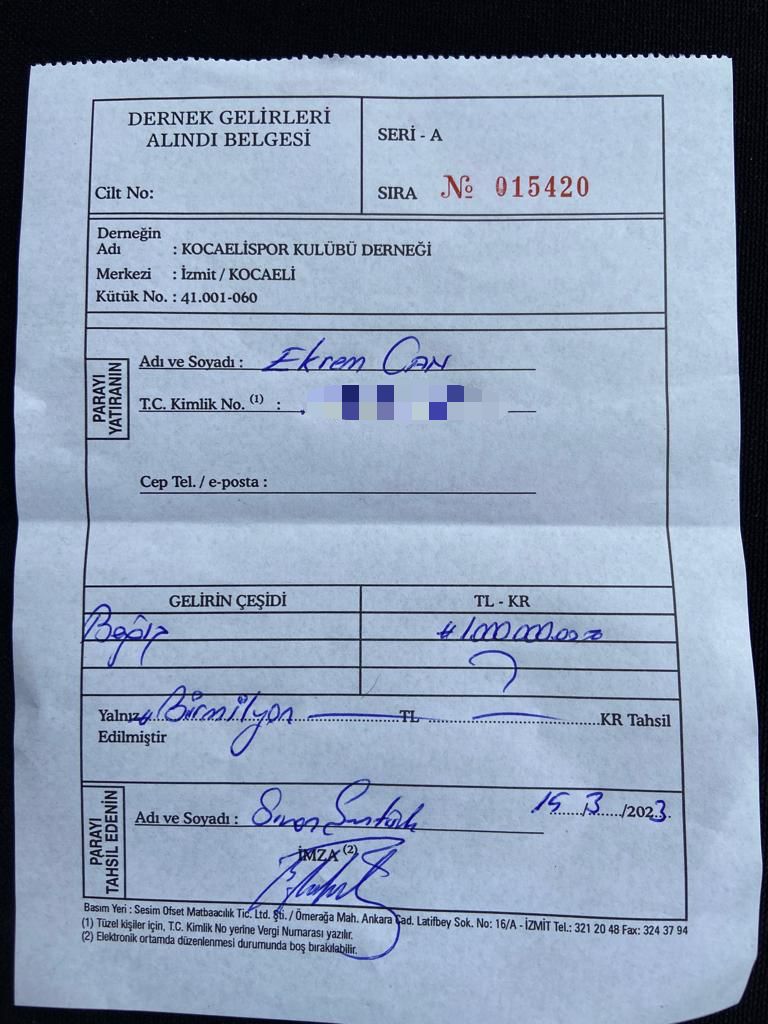 DERNEK GELİRLERİ
ALINDI BELGESİ
Cilt No:
SERİ - A
SIRA № 015420
Derneğin
Adı : KOCAELİSPOR KULÜBÜ DERNEĞİ
Merkezi : İzmit / KOCAELİ
Kütük No. : 41.001-060
PARAYI
YATIRANIN
Adı ve Soyadı : Ekrem CAN
T.C. Kimlik No. (1) :
Cep Tel. / e-posta :
GELİRİN ÇEŞİDİ TL - KR
Bağış #1.000.000.00
Yalnız # Birmilyon TL KR Tahsil
Edilmiştir
PARAYI
TAHSİL EDENİN
Adı ve Soyadı : 15/3/2023.
İMZA (2)
Basım Yeri : Sesim Ofset Matbaacılık Tic. Ltd. Şti. / Ömerağa Mah. Ankara Cad. Latifbey Sok. No: 16/A - İZMİT Tel.: 321 20 48 Fax: 324 37 94
(1) Tüzel kişiler için, T.C. Kimlik No yerine Vergi Numarası yazılır.
(2) Elektronik ortamda düzenlenmesi durumunda boş bırakılabilir.